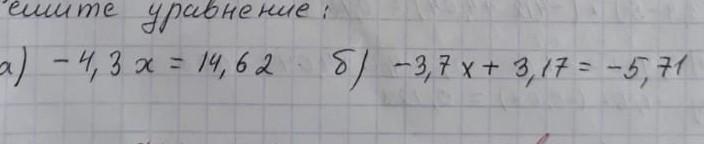 ешите уравнение:
а) -4,3 х = 14,62 б) -3,7 х + 3,17 = -5,71